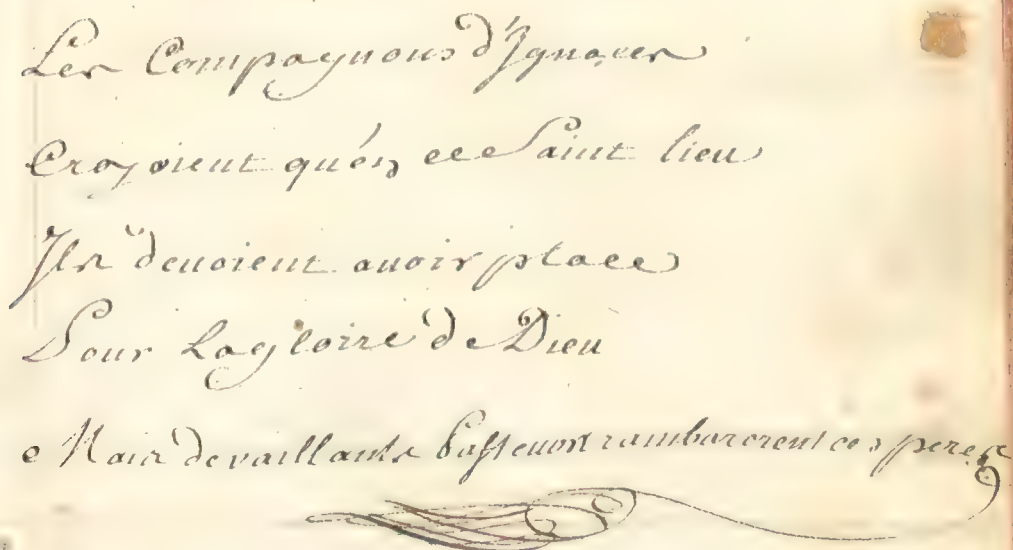 Les Compagnons d'Ignaces
Croyoient qu'en ce Saint lieu
Ils devoient avoir place
Pour La gloire de Dieu
Mais de vaillants Pasteurs rambarerent ces peres